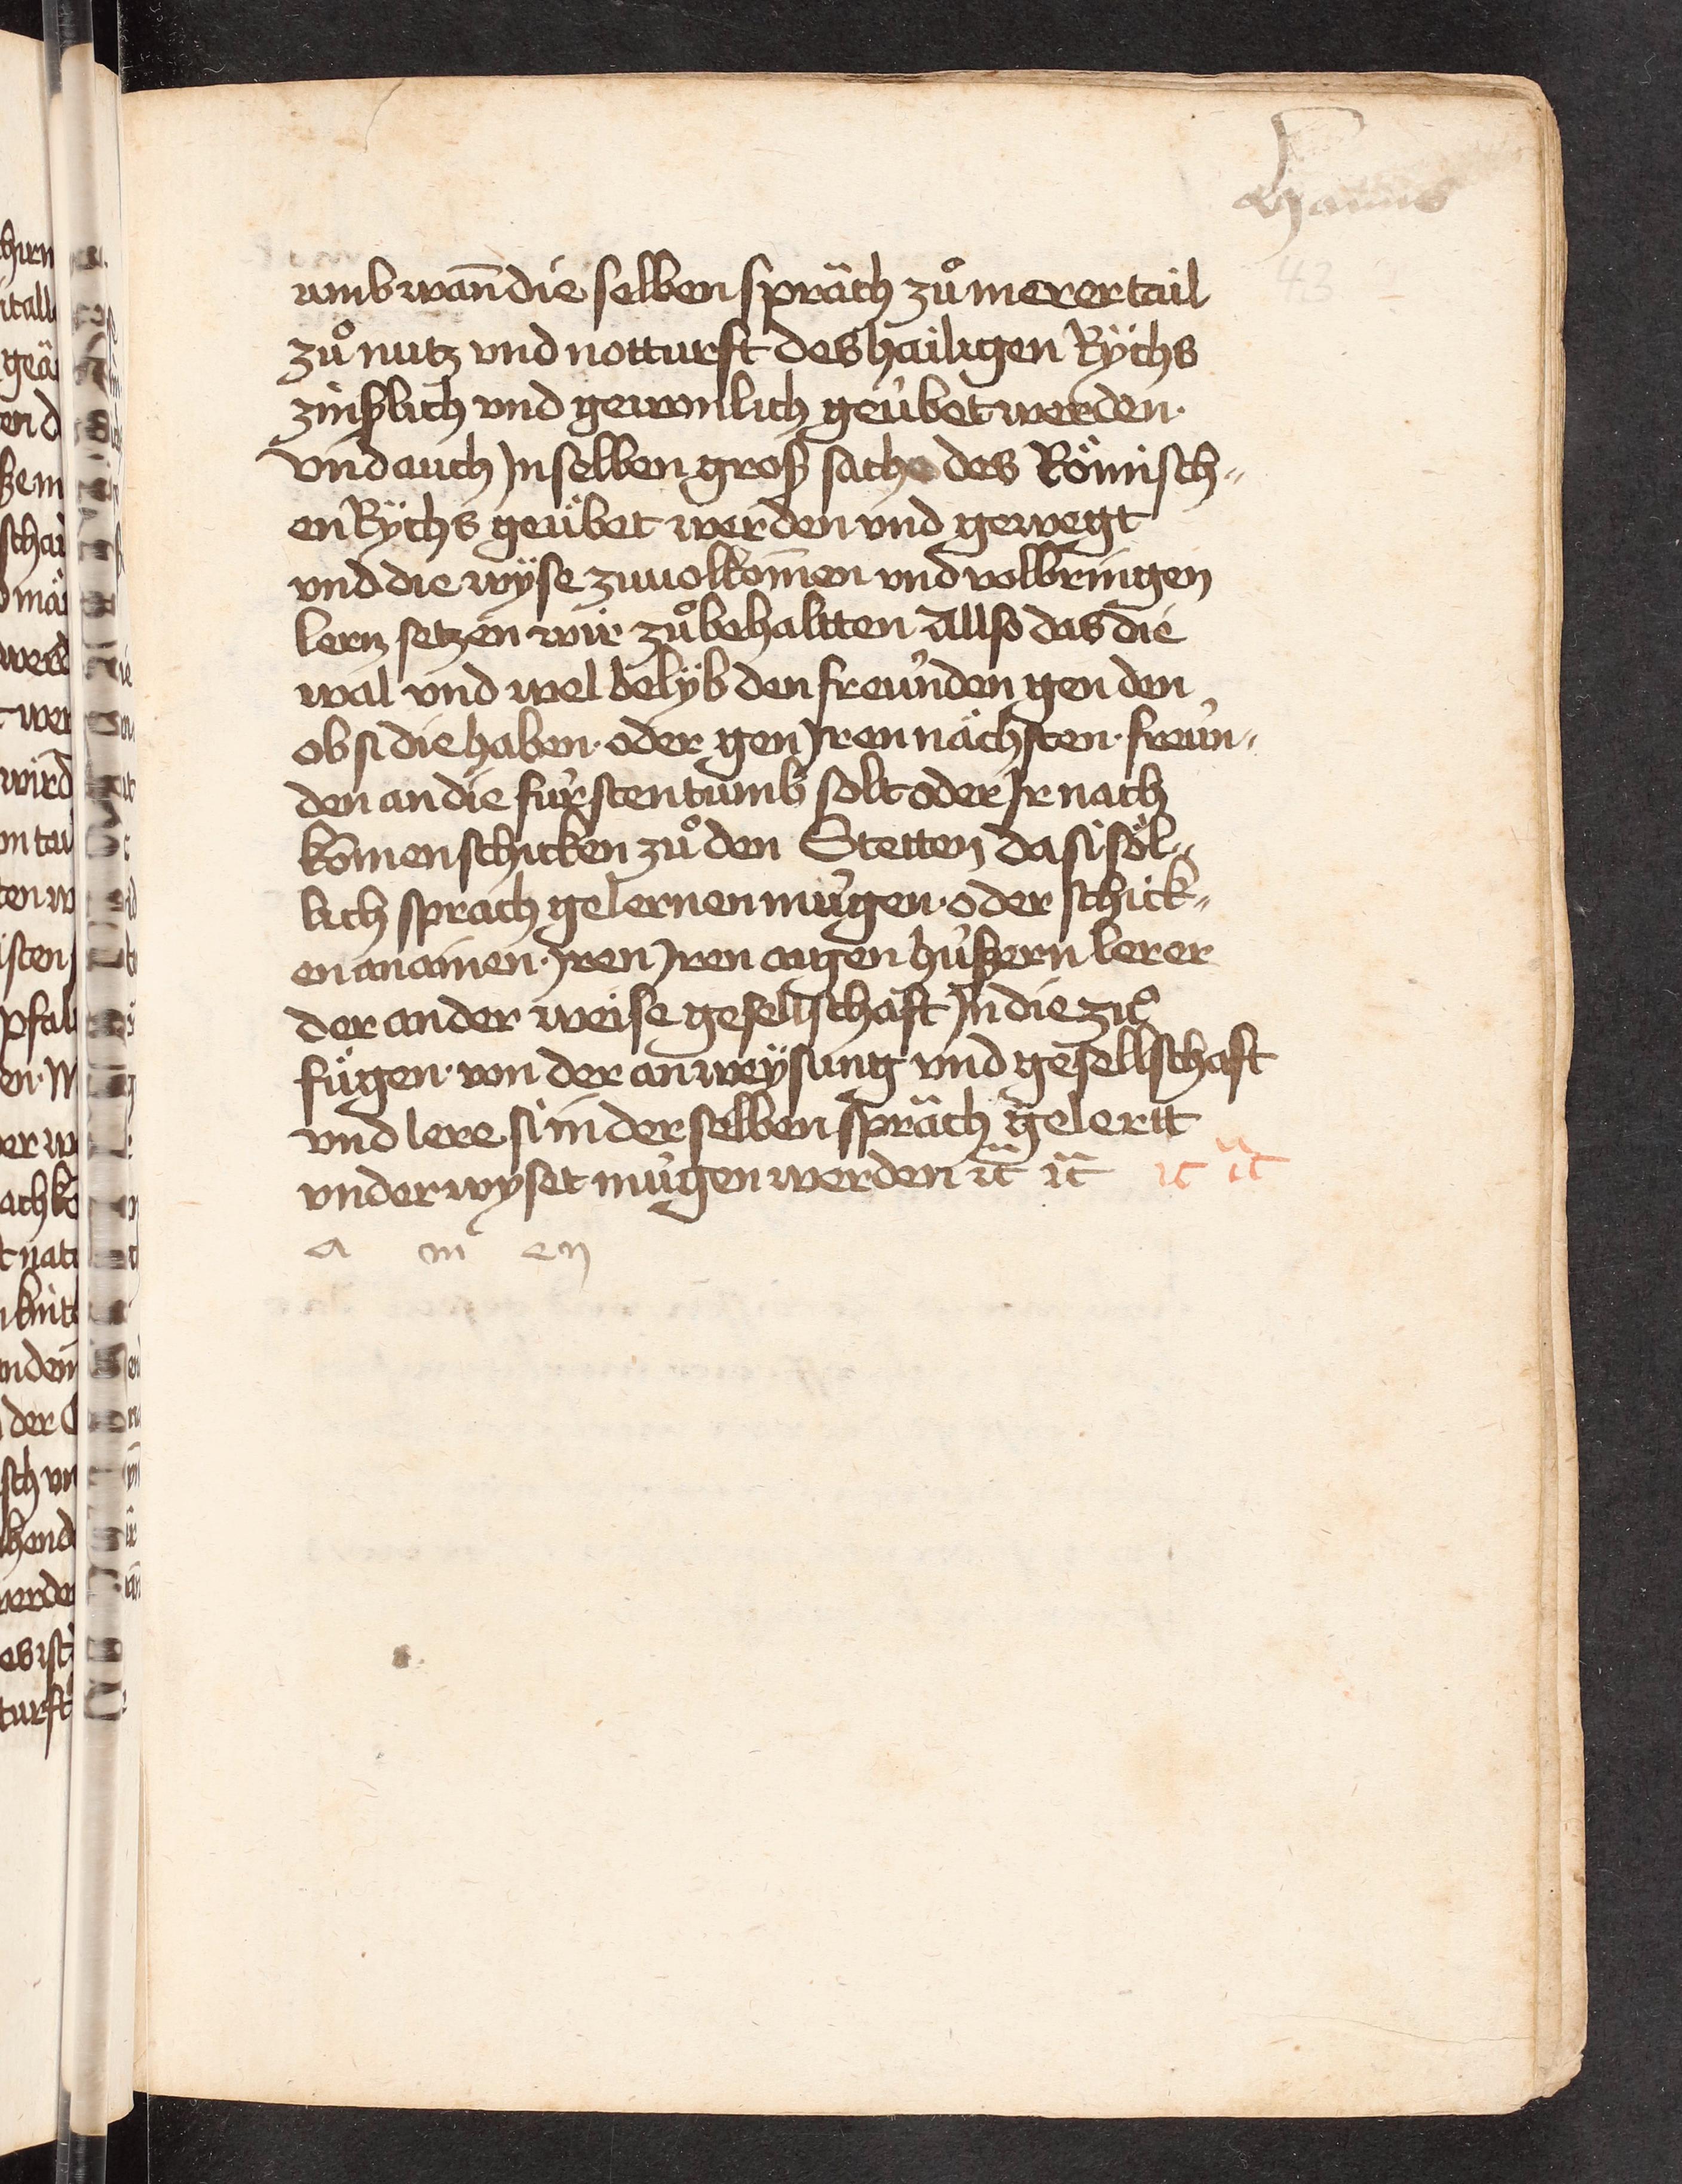 43
umb wan̄ die selben spräch zů merer tail
zů nutz vnd notturft des hailigen Rÿchs
zinßlich vnd gewonlich geübet werden·
vnd auch Jn selben groß sache des Römisch„
en Rÿchs geübet werden vnd gewegt
vnd die wÿse zuuolkom̄en vnd volbringen
lern setzen wir zů behaltten Allso das die
wal vnd wel belÿb den freünden gen den
ob si die haben· oder gen Jren nächsten· freün„
den an die fürstentumb solt oder Jr nach
kom̄en schicken zů den Stetten da si söl„
lich sprach gelernen mügen· oder schick„
en an ainen· Jren Jren aigen hüßern lerer
der ander weise gesellschaft Jn die zit
fügen· von der an weÿsung vnd gesellschaft
vnd lere si in der selben spräch gelertt
vnderwyset mügen werden ꝛc̄ ꝛc̄ ꝛc ꝛc̄
a m en